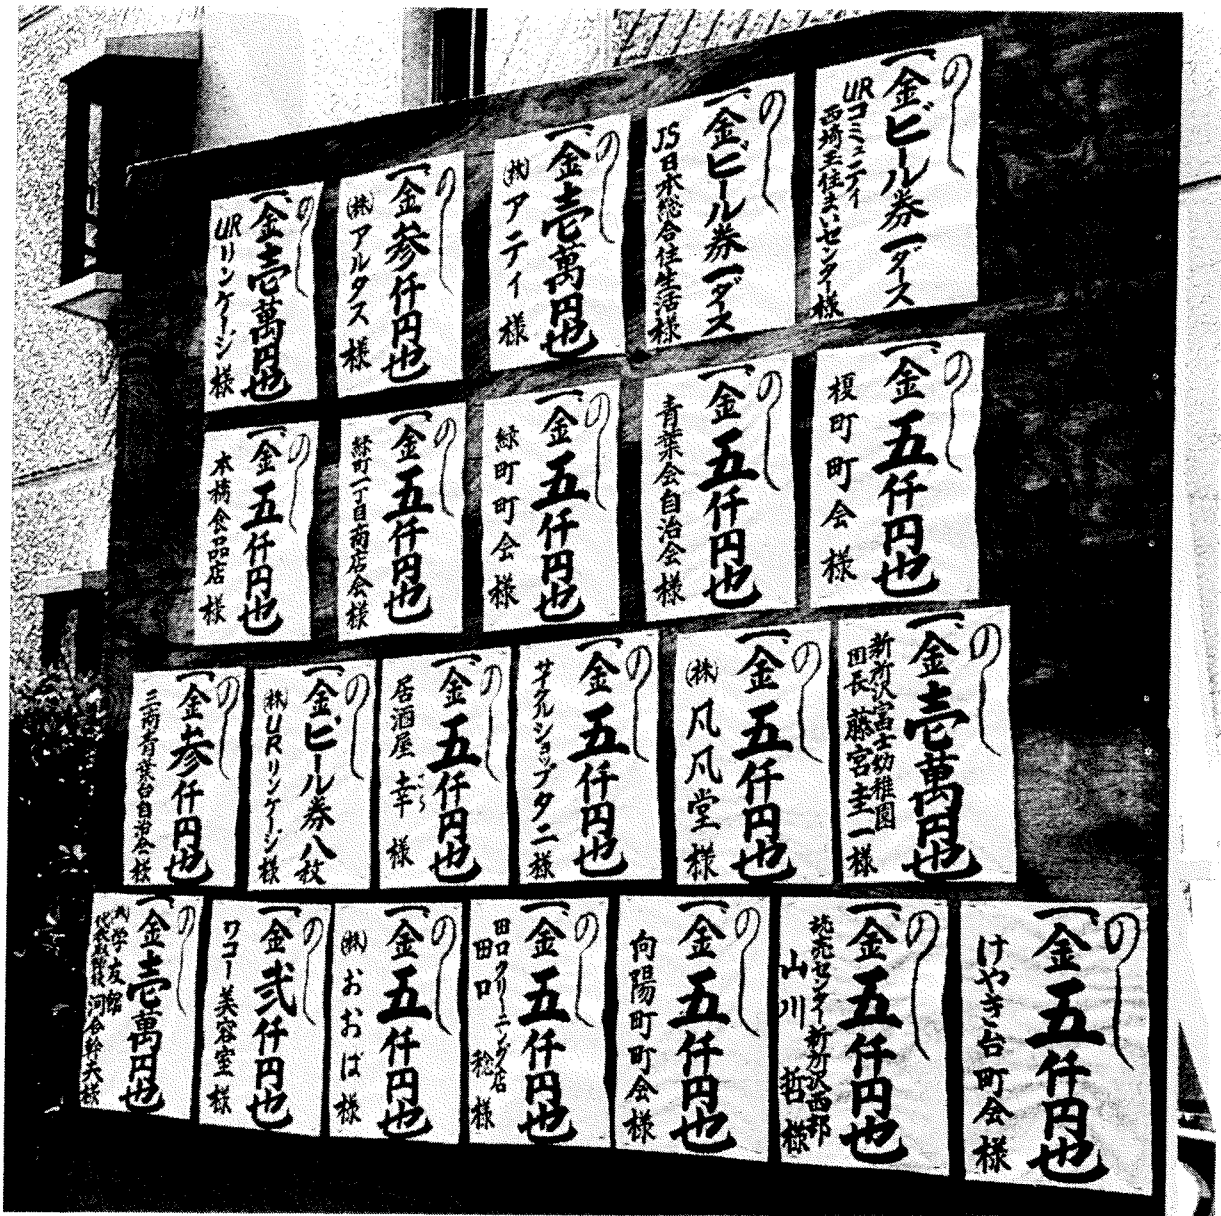 のし
一金ビール券一ダース
URコミュニティ
西埼玉住まいセンター様
のし
一金ビール券一ダース
JS日本総合住生活様
のし
一金壱萬円也
(株)アティ様
のし
一金参仟円也
(株)アルタス様
のし
一金壱萬円也
URリンケージ様
のし
一金五仟円也
榎町町会様
のし
一金五仟円也
青葉会自治会様
のし
一金五仟円也
緑町町会様
のし
一金五仟円也
緑町一丁目商店会様
のし
一金五仟円也
本橋食品店様
のし
一金壱萬円也
新所沢富士幼稚園
園長 藤宮圭一様
のし
一金五仟円也
(株)凡凡堂様
のし
一金五仟円也
サイクルショップタニ様
のし
一金五仟円也
居酒屋 幸様
のし
一金ビール券八枚
(株)URリンケージ様
のし
一金参仟円也
三商青葉台自治会様
のし
一金五仟円也
けやき台町会様
のし
一金五仟円也
読売センター新所沢西部
山川 哲様
のし
一金五仟円也
向陽町町会様
のし
一金五仟円也
田口クリーニング店
田口 稔様
のし
一金五仟円也
(株)おおば様
のし
一金弐仟円也
ワコー美容室様
のし
一金壱萬円也